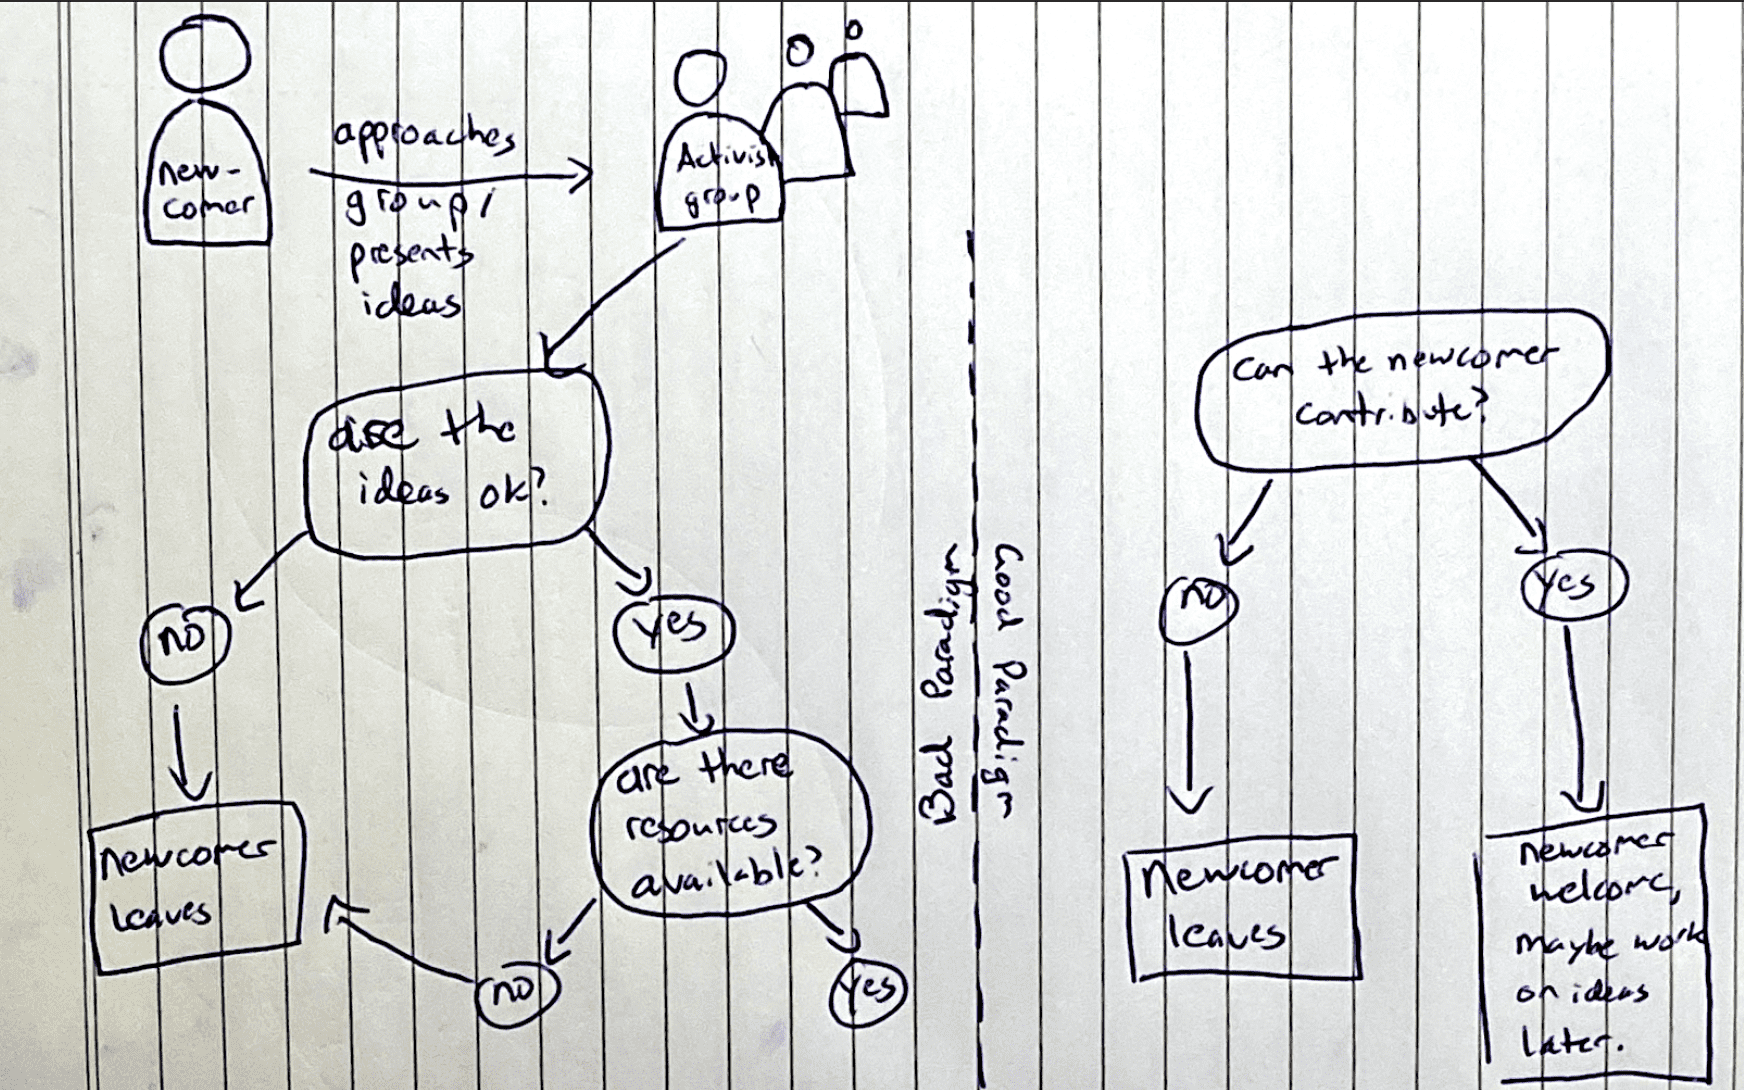 new-
comer
approaches
group/
presents
ideas
Activist
group
are the
ideas ok?
no
yes
Newcomer
leaves
are there
resources
available?
no
yes
Bad Paradigm
Good Paradigm
Can the newcomer
contribute?
no
yes
Newcomer
leaves
newcomer
welcome,
maybe work
on ideas
later.